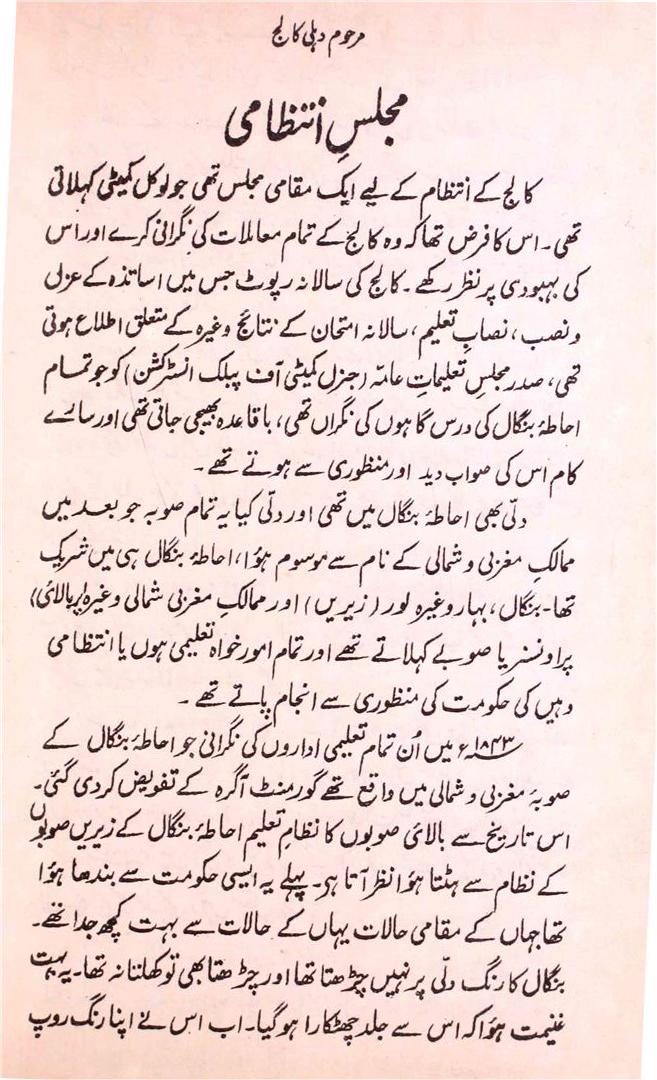 مرحوم دہلی کالج
مجلسِ انتظامی
کالج کے انتظام کے لیے ایک مقامی مجلس تھی جو لوکل کمیٹی کہلاتی
تھی۔ اس کا فرض تھا کہ وہ کالج کے تمام معاملات کی نگرانی کرے اور اس
کی بہبودی پر نظر رکھے۔ کالج کی سالانہ رپورٹ جس میں اساتذہ کے عزل
و نصب، نصابِ تعلیم، سالانہ امتحان کے نتائج وغیرہ کے متعلق اطلاع ہوتی
تھی، صدر مجلسِ تعلیماتِ عامّہ (جنرل کمیٹی آف پبلک انسٹرکشن) کو جو تمام
احاطۂ بنگال کی درس گاہوں کی نگراں تھی، باقاعدہ بھیجی جاتی تھی اور سارے
کام اس کی صواب دید اور منظوری سے ہوتے تھے۔
دلّی بھی احاطۂ بنگال میں تھی اور دلّی کیا یہ تمام صوبہ جو بعد میں
ممالکِ مغربی و شمالی کے نام سے موسوم ہؤا، احاطۂ بنگال ہی میں شریک
تھا۔ بنگال، بہار وغیرہ لور (زیریں) اور ممالکِ مغربی شمالی وغیرہ اپر (بالائی)
پراونسنر یا صوبے کہلاتے تھے اور تمام امور خواہ تعلیمی ہوں یا انتظامی
وہیں کی حکومت کی منظوری سے انجام پاتے تھے۔
۱۸۴۳ء میں اُن تمام تعلیمی اداروں کی نگرانی جو احاطۂ بنگال کے
صوبۂ مغربی و شمالی میں واقع تھے گورمنٹ آگرہ کے تفویض کردی گئی۔
اس تاریخ سے بالائی صوبوں کا نظامِ تعلیم احاطۂ بنگال کے زیریں صوبوں
کے نظام سے ہٹتا ہؤا نظر آتا ہی۔ پہلے یہ ایسی حکومت سے بندھا ہؤا
تھا جہاں کے مقامی حالات یہاں کے حالات سے بہت کچھ جدا تھے۔
بنگال کا رنگ دلّی پر نہیں چڑھتا تھا اور چڑھتا بھی تو کھلتا نہ تھا۔ یہ بہت
غنیمت ہؤا کہ اس سے جلد چھٹکارا ہوگیا۔ اب اس نے اپنا رنگ روپ